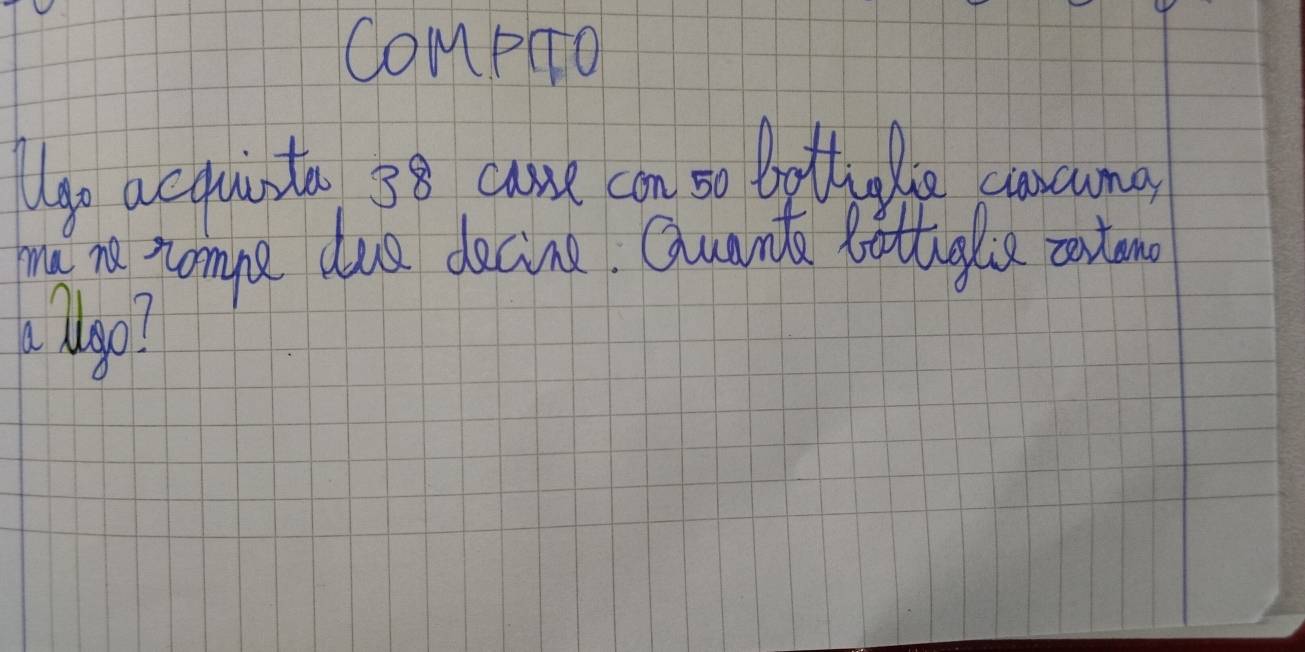 COMPITO
Ugo acquista 38 casse con 50 bottiglie ciascuna,
ma ne rompe due decine. Quante bottiglie restano
a Ugo?